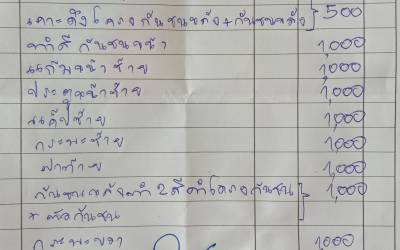 เคาะดึงโครงกันชนหลัง+กันชนหลัง } 500
ทำสีกันชนหน้า 1,000
แก้มหน้าซ้าย 1,000
ประตูหน้าซ้าย 1,000
แค๊ปซ้าย 1,000
กระบะซ้าย 1,000
ฝาท้าย 1,000
กันชนหลังทำ 2 สีดำโครงกันชน } 1,000
+ ตัวกันชน
กระบะขวา 1,000